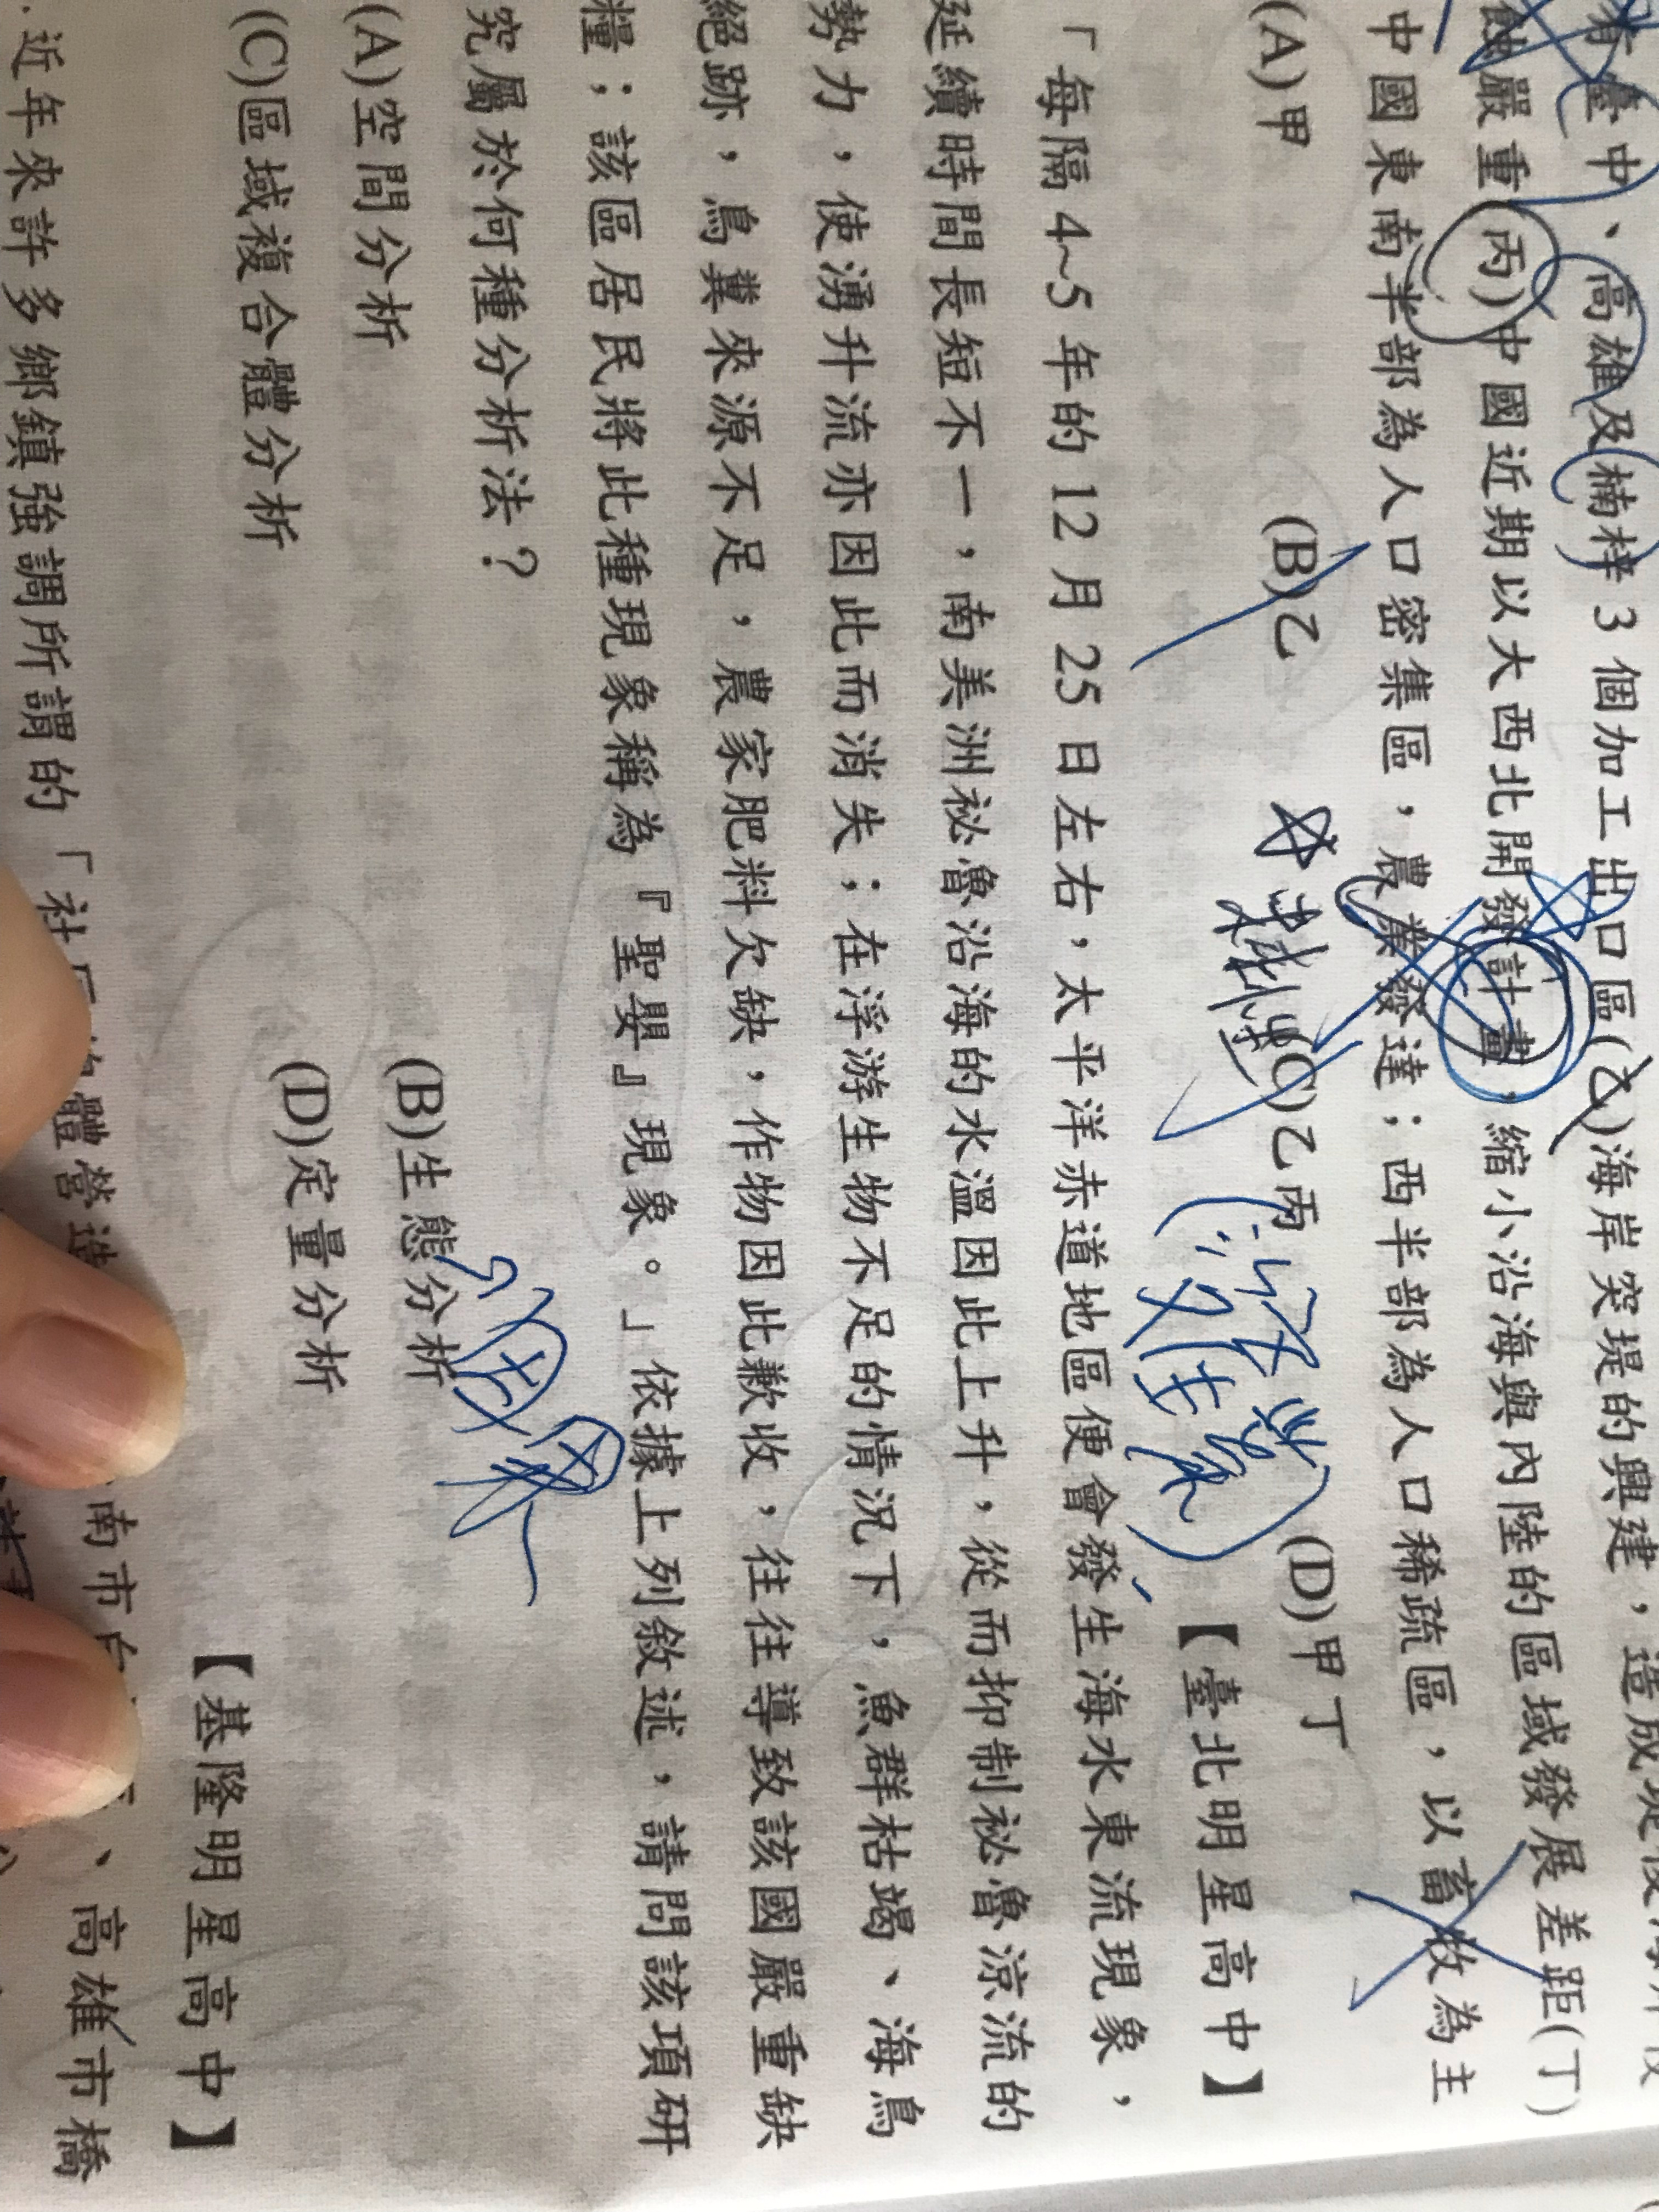 有臺中、高雄及楠梓 3 個加工出口區(乙)海岸突堤的興建，造成堤後
蝕嚴重(丙)中國近期以大西北開發計畫，縮小沿海與內陸的區域發展差距(丁)
中國東南半部為人口密集區，農業發達；西半部為人口稀疏區，以畜牧為主
(A)甲 (B)乙 (C)乙丙 (D)甲丁
【臺北明星高中】
「每隔 4~5 年的 12 月 25 日左右，太平洋赤道地區便會發生海水東流現象，
延續時間長短不一，南美洲祕魯沿海的水溫因此上升，從而抑制祕魯涼流的
勢力，使湧升流亦因此而消失；在浮游生物不足的情況下，魚群枯竭、海鳥
絕跡，鳥糞來源不足，農家肥料欠缺，作物因此歉收，往往導致該國嚴重缺
糧；該區居民將此種現象稱為『聖嬰』現象。」依據上列敘述，請問該項研
究屬於何種分析法？
(A)空間分析 (B)生態分析
(C)區域複合體分析 (D)定量分析
【基隆明星高中】
近年來許多鄉鎮強調所謂的「社區總體營造 南市白 、高雄市橋